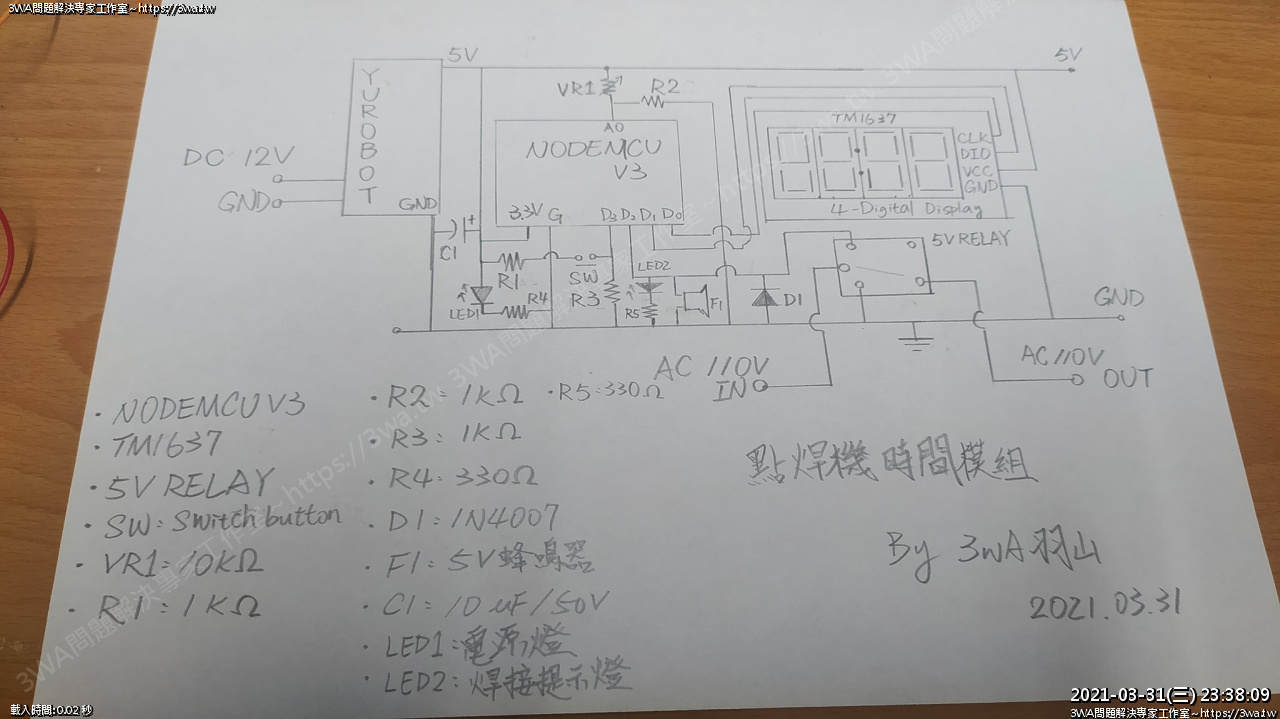 3WA問題解決專家工作室~https://3wa.tw
5V
5V
YUROBOT
VR1
R2
A0
NODEMCU
V3
TM1637
CLK
DIO
VCC
GND
4-Digital Display
DC 12V
GND
GND
3.3V G D3 D2 D1 D0
C1
R1
SW
LED2
5V RELAY
R4
R3
R5
F1
D1
LED1
GND
AC 110V
IN
AC 110V
OUT
・NODEMCU V3
・TM1637
・5V RELAY
・SW: Switch button
・VR1: 10kΩ
・R1: 1KΩ
・R2: 1KΩ ・R5: 330Ω
・R3: 1KΩ
・R4: 330Ω
・D1: 1N4007
・F1: 5V蜂鳴器
・C1: 10uF/50V
・LED1: 電源燈
・LED2: 焊接提示燈
點焊機時間模組
By 3wA羽山
2021.03.31
3WA問題解決專家工作室~https://3wa.tw
載入時間:0.02 秒
2021-03-31(三) 23:38:09
3WA問題解決專家工作室~https://3wa.tw